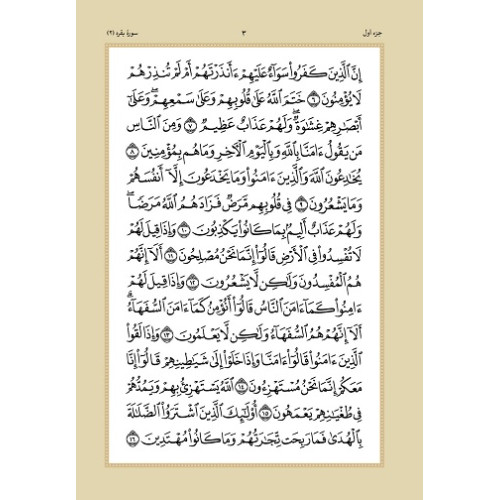 جزء اول ۳ سورهٔ بقره (۲)
إِنَّ ٱلَّذِينَ كَفَرُوا۟ سَوَآءٌ عَلَيْهِمْ ءَأَنذَرْتَهُمْ أَمْ لَمْ تُنذِرْهُمْ
لَا يُؤْمِنُونَ ۶ خَتَمَ ٱللَّهُ عَلَىٰ قُلُوبِهِمْ وَعَلَىٰ سَمْعِهِمْ ۖ وَعَلَىٰٓ
أَبْصَـٰرِهِمْ غِشَـٰوَةٌ ۖ وَلَهُمْ عَذَابٌ عَظِيمٌ ۷ وَمِنَ ٱلنَّاسِ
مَن يَقُولُ ءَامَنَّا بِٱللَّهِ وَبِٱلْيَوْمِ ٱلْـَٔاخِرِ وَمَا هُم بِمُؤْمِنِينَ ۸
يُخَـٰدِعُونَ ٱللَّهَ وَٱلَّذِينَ ءَامَنُوا۟ وَمَا يَخْدَعُونَ إِلَّآ أَنفُسَهُمْ
وَمَا يَشْعُرُونَ ۹ فِى قُلُوبِهِم مَّرَضٌ فَزَادَهُمُ ٱللَّهُ مَرَضًا ۖ
وَلَهُمْ عَذَابٌ أَلِيمٌۢ بِمَا كَانُوا۟ يَكْذِبُونَ ۱۰ وَإِذَا قِيلَ لَهُمْ
لَا تُفْسِدُوا۟ فِى ٱلْأَرْضِ قَالُوٓا۟ إِنَّمَا نَحْنُ مُصْلِحُونَ ۱۱ أَلَآ إِنَّهُمْ
هُمُ ٱلْمُفْسِدُونَ وَلَـٰكِن لَّا يَشْعُرُونَ ۱۲ وَإِذَا قِيلَ لَهُمْ
ءَامِنُوا۟ كَمَآ ءَامَنَ ٱلنَّاسُ قَالُوٓا۟ أَنُؤْمِنُ كَمَآ ءَامَنَ ٱلسُّفَهَآءُ ۗ
أَلَآ إِنَّهُمْ هُمُ ٱلسُّفَهَآءُ وَلَـٰكِن لَّا يَعْلَمُونَ ۱۳ وَإِذَا لَقُوا۟
ٱلَّذِينَ ءَامَنُوا۟ قَالُوٓا۟ ءَامَنَّا وَإِذَا خَلَوْا۟ إِلَىٰ شَيَـٰطِينِهِمْ قَالُوٓا۟ إِنَّا
مَعَكُمْ إِنَّمَا نَحْنُ مُسْتَهْزِءُونَ ۱۴ ٱللَّهُ يَسْتَهْزِئُ بِهِمْ وَيَمُدُّهُمْ
فِى طُغْيَـٰنِهِمْ يَعْمَهُونَ ۱۵ أُو۟لَـٰٓئِكَ ٱلَّذِينَ ٱشْتَرَوُا۟ ٱلضَّلَـٰلَةَ
بِٱلْهُدَىٰ فَمَا رَبِحَت تِّجَـٰرَتُهُمْ وَمَا كَانُوا۟ مُهْتَدِينَ ۱۶